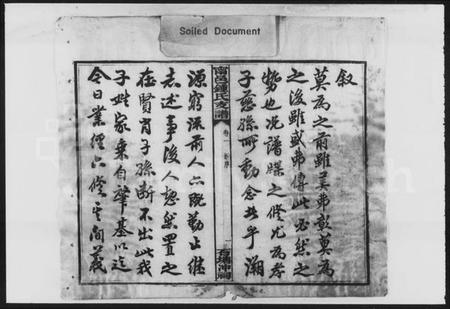 Soiled Document
叙
莫為之前雖美弗彰莫為
之後雖盛弗傳此必然之
勢也况譜牒之修尤為孝
子慈孫所動念者乎溯
南昌鍾氏支譜
卷一
源窮流前人亦既勤止繼
志述事後人恝然置之
在賢肖子孫断不出此我
子姓家乘自肇基以迄
今日業經六修其间義